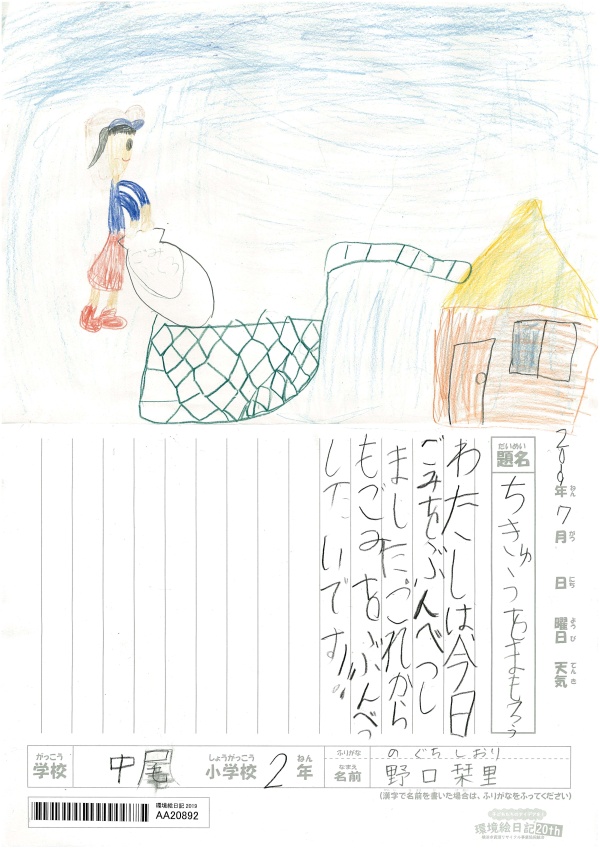 2009年7月 日 曜日 天気
ねん がつ にち ようび てんき
だいめい
題名
ちきゅうをまもろう
わたしは今日
ごみをぶんべつし
ました。これから
もごみをぶんべつ
したいです。
がっこう
学校
中尾
しょうがっこう
小学校
2
ねん
年
ふりがな
のぐちしおり
なまえ
名前
野口栞里
(漢字で名前を書いた場合は、ふりがなをふってください)
環境絵日記 2019
AA20892
環境絵日記20th